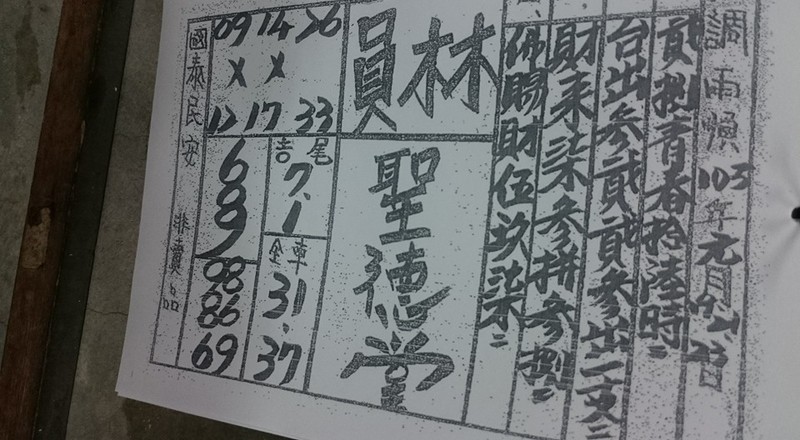 調雨順 103年元月
貳捌青春拾陸時
台出參貳貳參出二支
財來柒參拼參捌
佛賜財伍玖柒
林員
聖德堂
09 14 26
x x
12 17 33
吉尾
7.1
全車
31.37
6
8
9
98
86
69
國泰民安 非賣品